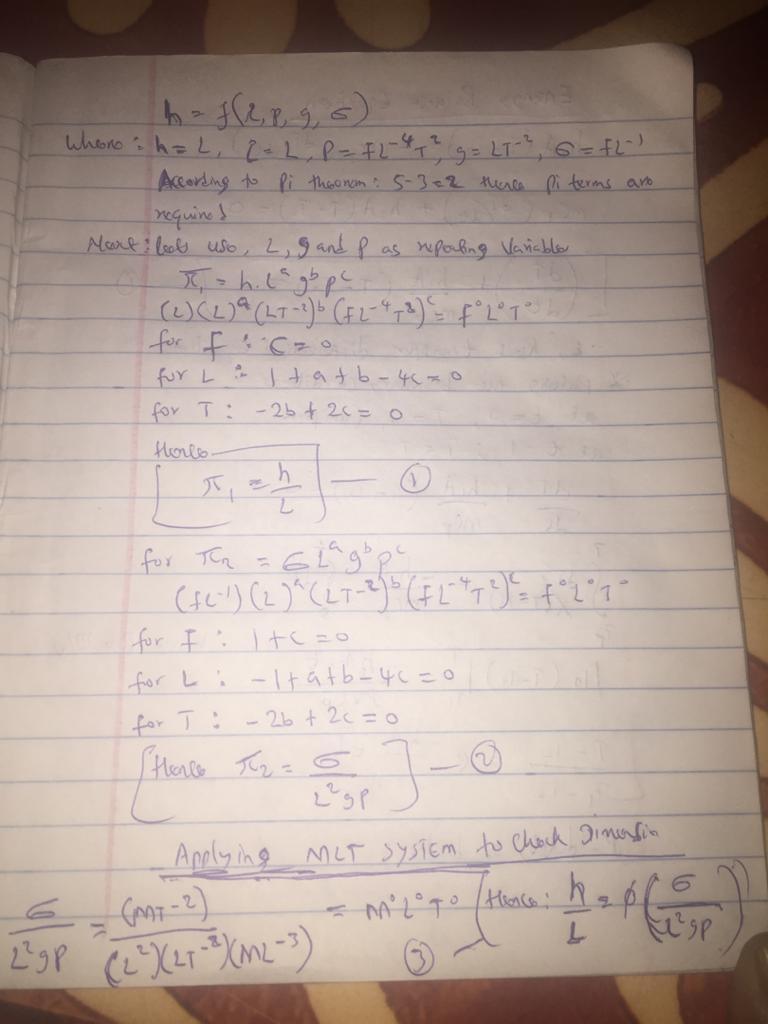 h = f(l, p, g, σ)
Where: h = L, l = L, P = FL⁻⁴T², g = LT⁻², σ = FL⁻¹
According to Pi theorem: 5-3=2 thence pi terms are
required
Next: lets use, L, g and p as repeating Variables
π₁ = h. Lᵃ gᵇ pᶜ
(L)(L)ᵃ (LT⁻²)ᵇ (FL⁻⁴T²)ᶜ = F⁰L⁰T⁰
for F : C = 0
for L : 1 + a + b - 4c = 0
for T : -2b + 2c = 0
Hence
π₁ = h/L — ①
for π₂ = σ Lᵃ gᵇ pᶜ
(FL⁻¹) (L)ᵃ (LT⁻²)ᵇ (FL⁻⁴T²)ᶜ = F⁰L⁰T⁰
for F : 1 + c = 0
for L : -1 + a + b - 4c = 0
for T : -2b + 2c = 0
[Hence π₂ = σ/L²gP] — ②
Applying MLT SYSTEM to Check Dimensin
σ/L²gP = (MT⁻²)/(L²)(LT⁻²)(ML⁻³) = M⁰L⁰T⁰ (Hence: h/L = φ(σ/L²gP)) ③